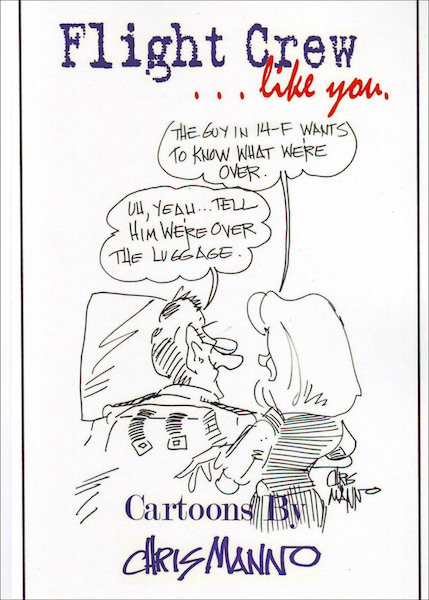 Flight Crew
...like you.
(THE GUY IN 14-F WANTS
TO KNOW WHAT WE'RE
OVER.
UH, YEAH...TELL
HIM WE'RE OVER
THE LUGGAGE.
CHRIS
MANNO
Cartoons By
CHRIS MANNO